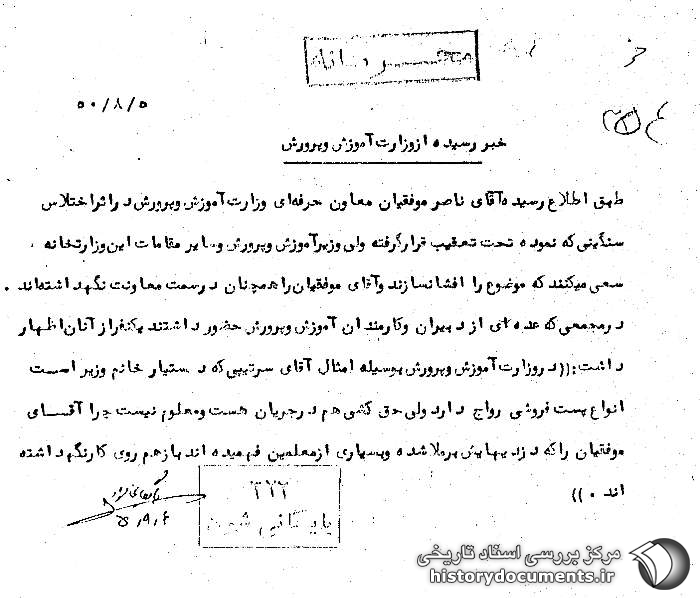 محرمانه
۵۰/۸/۵
خبر رسیده از وزارت آموزش و پرورش
طبق اطلاع رسیده آقای ناصر موفقیان معاون حرفه‌ای وزارت آموزش و پرورش در اثر اختلاس
سنگینی که نموده تحت تعقیب قرار گرفته ولی وزیر آموزش و پرورش و سایر مقامات این وزارتخانه
سعی میکنند که موضوع را افشا نسازند و آقای موفقیان را همچنان در سمت معاونت نگهداشته‌اند .
در مجمعی که عده‌ای از دبیران و کارمندان آموزش و پرورش حضور داشتند یکنفر از آنان اظهار
داشت :(( در وزارت آموزش و پرورش بوسیله امثال آقای سرتیپی که دستیار خانم وزیر است
انواع پست فروشی رواج دارد ولی حق کشی هم در جریان هست و معلوم نیست چرا آقای
موفقیان را که دزدیهایش برملا شده و بسیاری از معلمین فهمیده‌اند باز هم روی کار نگهداشته
اند . ))
۳۷۲
بایگانی شود
مرکز بررسی اسناد تاریخی
historydocuments.ir